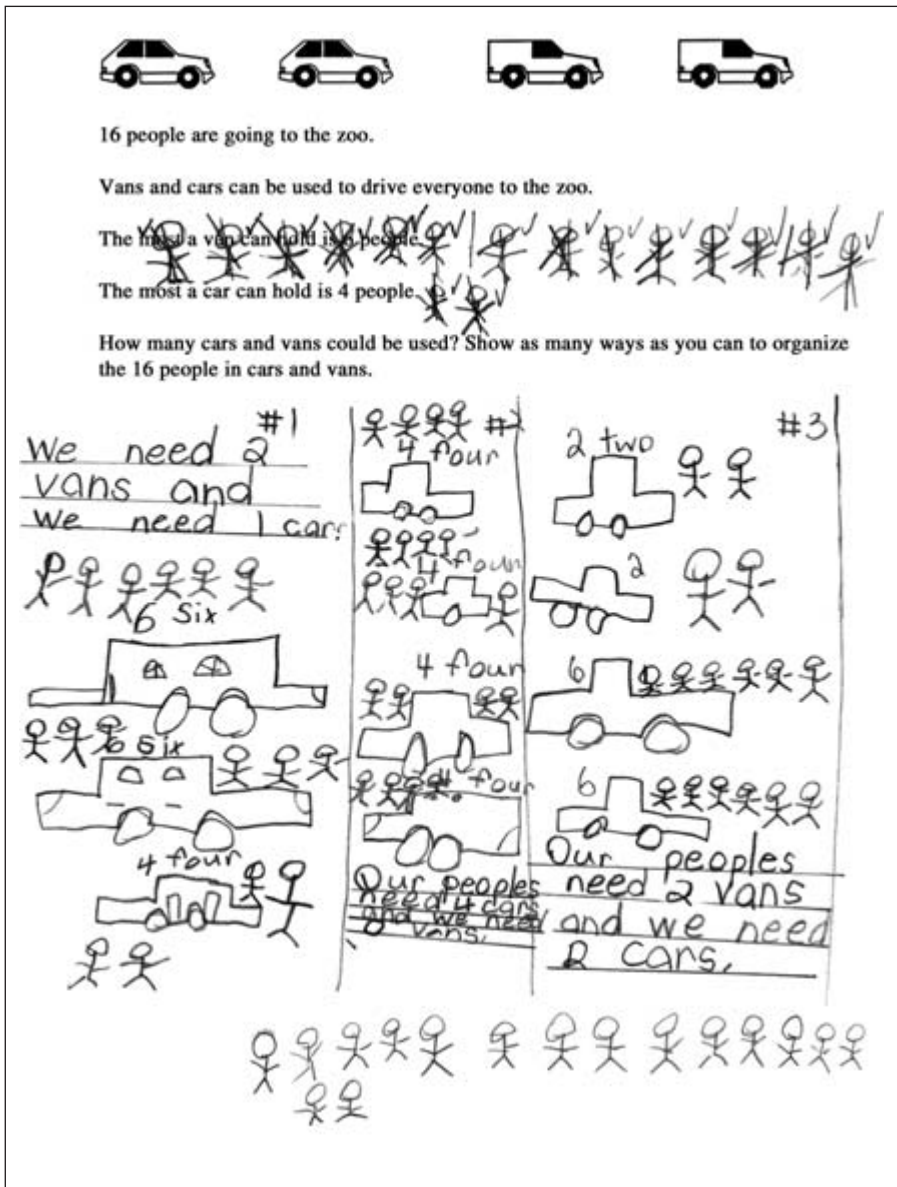 16 people are going to the zoo.
Vans and cars can be used to drive everyone to the zoo.
The most a van can hold is 6 people.
The most a car can hold is 4 people.
How many cars and vans could be used? Show as many ways as you can to organize
the 16 people in cars and vans.
#1
We need 2
vans and
we need 1 car
6 six
6 six
4 four
#2
4 four
4 four
4 four
4 four
Our peoples
need 4 cars
and we need
0 vans.
#3
2 two
2
6
6
Our peoples
need 2 vans
and we need
2 cars.